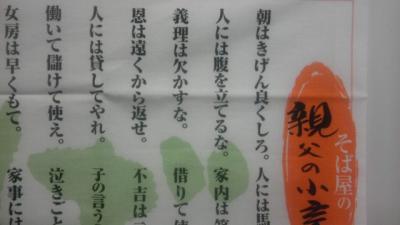 そば屋の
親父の小言
朝はきげん良くしろ。人には馬
人には腹を立てるな。家内は笑
義理は欠かすな。借りて
恩は遠くから返せ。不吉は
人には貸してやれ。子の言う
働いて儲けて使え。泣きごと
女房は早くもて。家事には